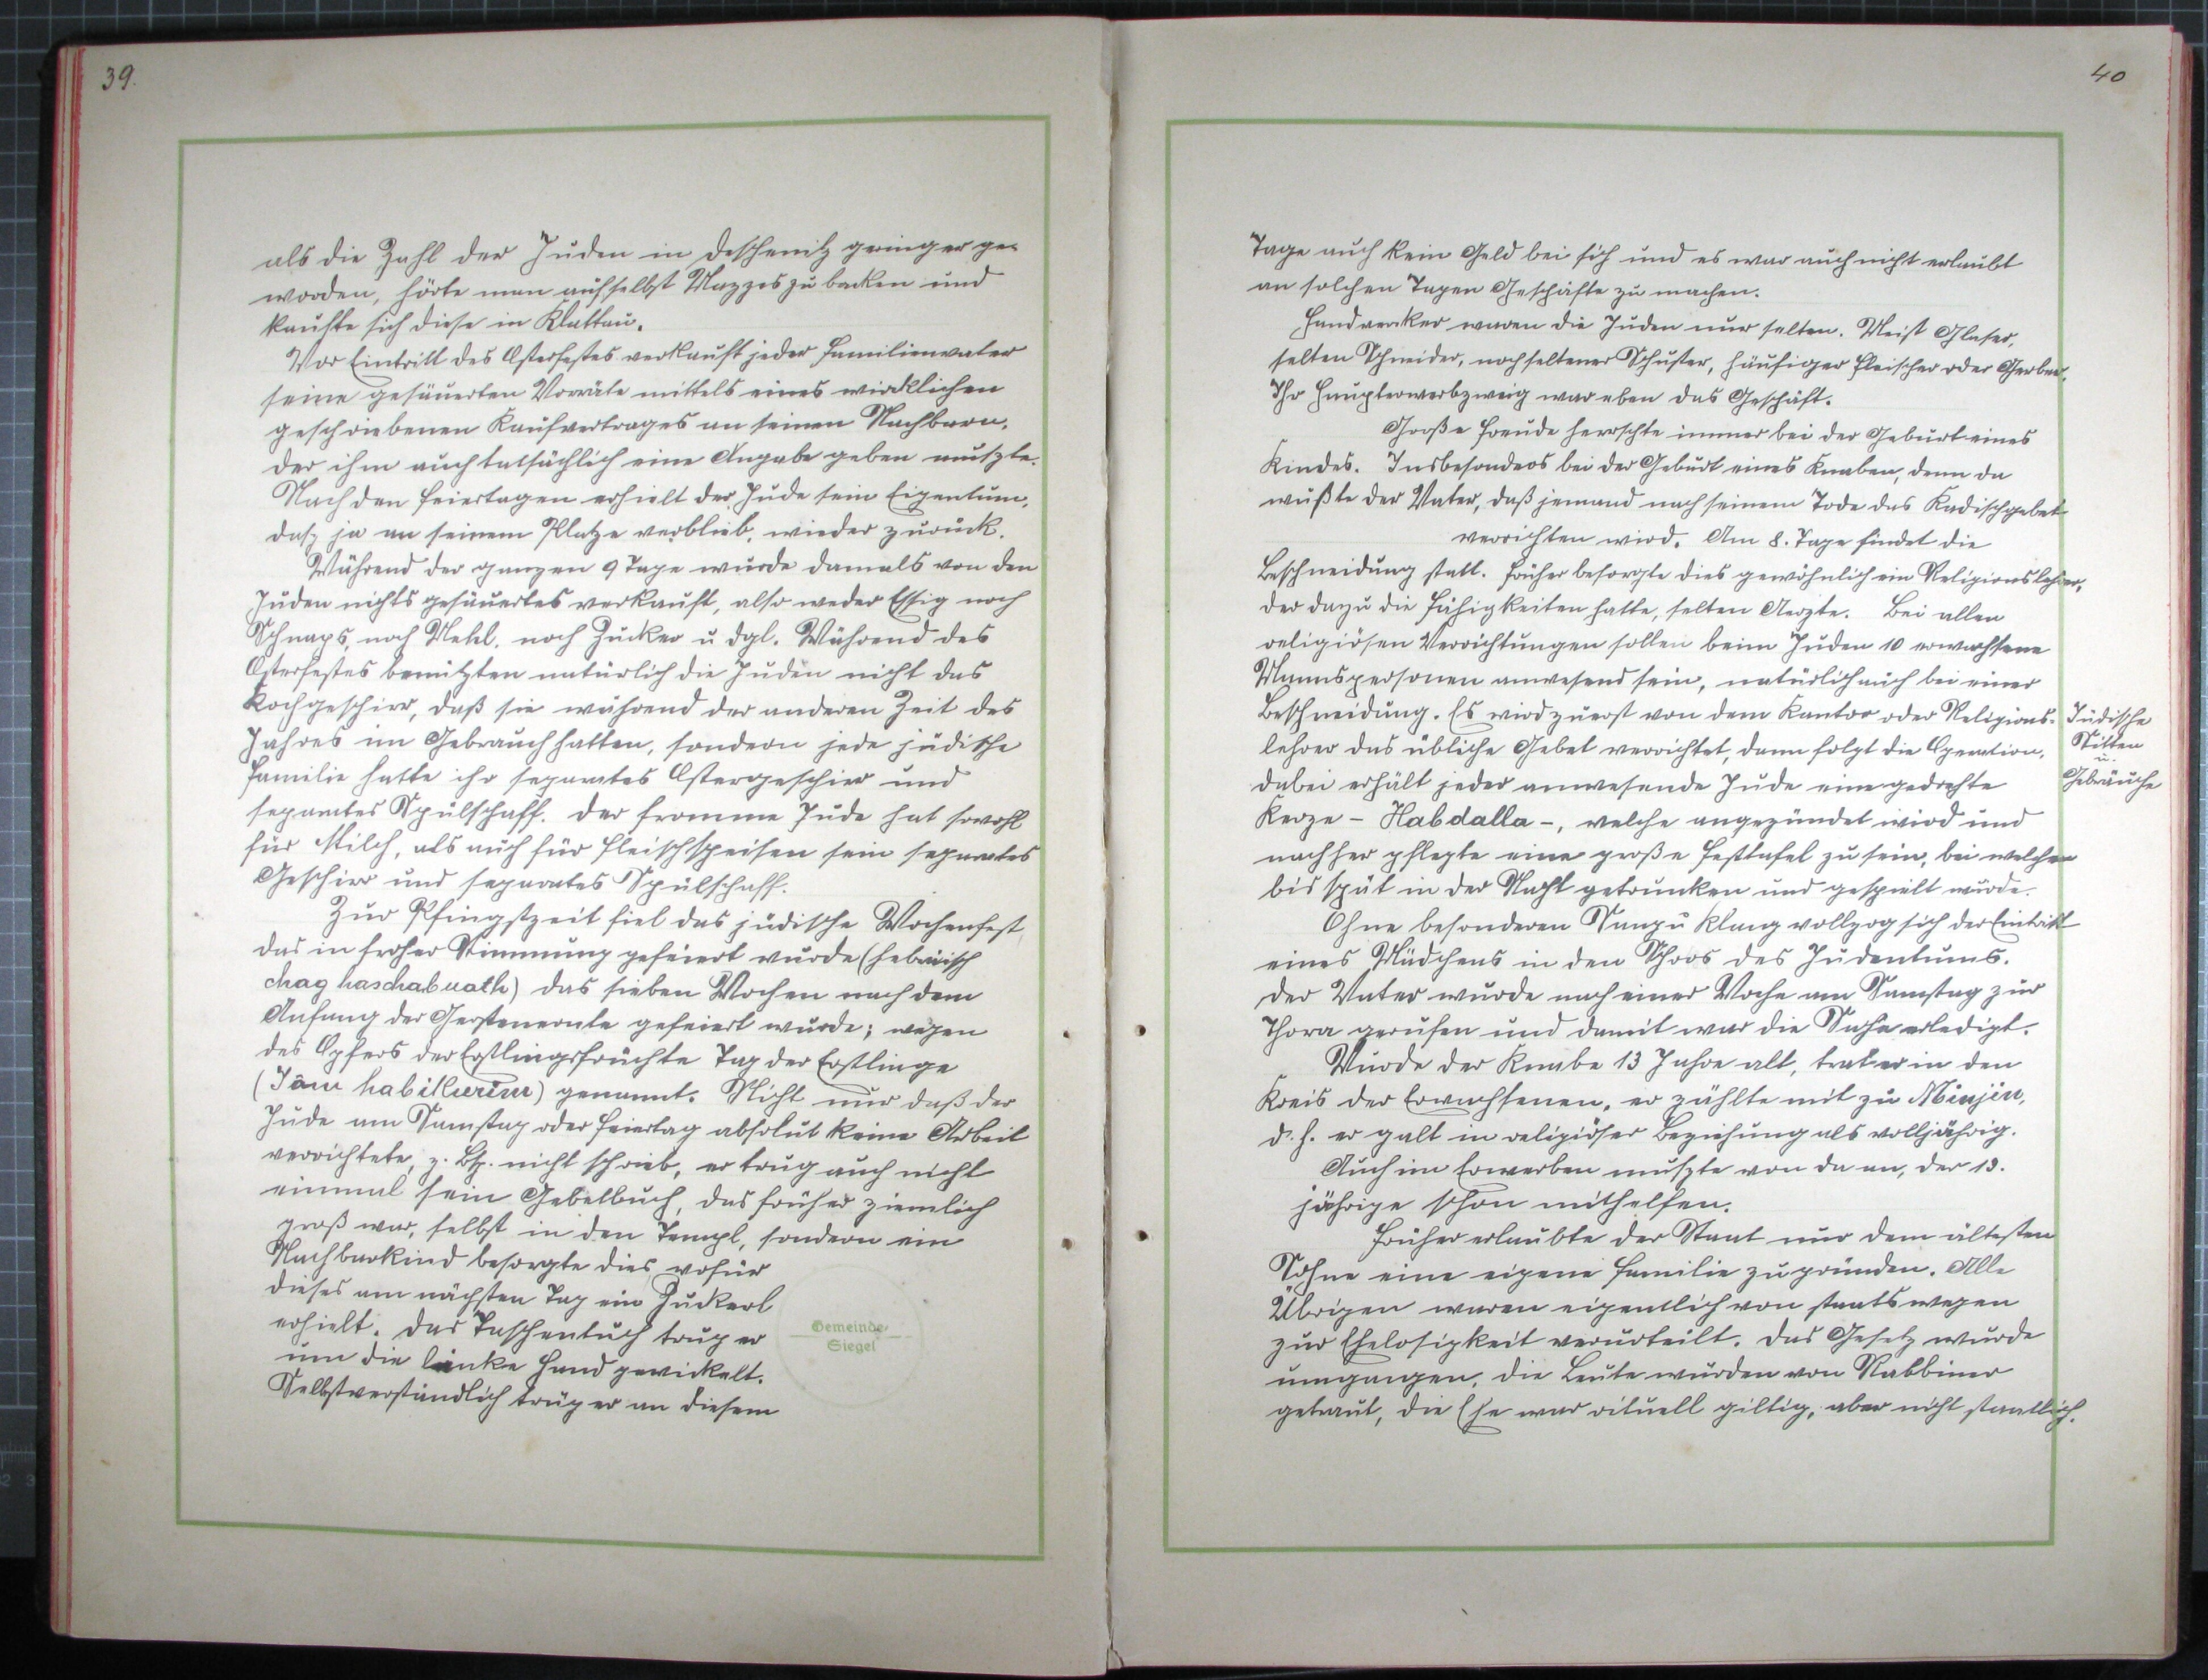 39.
als die Zahl der Juden in Deschenitz geringer ge-
worden, hörte man auf selbst Mazzes zu backen und
kaufte sich diese in Klattau.
Vor Eintritt des Osterfestes verkauft jeder Familienvater
seine gesäuerten Vorräte mittels eines wirklichen
geschriebenen Kaufvertrages an seinen Nachbarn,
der ihm auch tatsächlich eine Angabe geben muszte.
Nach den Feiertagen erhielt der Jude sein Eigentum,
dasz ja an seinem Platze verblieb, wieder zurück.
Während der ganzen 9 Tage wurde damals von den
Juden nichts gesäuertes verkauft, also weder Essig noch
Schnaps, noch Mehl, noch Zucker u dgl. Während des
Osterfestes benützten natürlich die Juden nicht das
Kochgeschirr, daß sie während der anderen Zeit des
Jahres im Gebrauch hatten, sondern jede jüdische
Familie hatte ihr separates Ostergeschirr und
separates Spülschaff. Der fromme Jude hat sowohl
für Milch, als auch für Fleischspeisen sein separates
Geschirr und separates Spülschaff.
Zur Pfingstzeit fiel das jüdische Wochenfest,
das in froher Stimmung gefeiert wurde (hebräisch
chag haschabuath) das sieben Wochen nach dem
Anfang der Gerstenernte gefeiert wurde; wegen
des Opfers der Erstlingsfrüchte Tag der Erstlinge
(Jôm habikurim) genannt. Nicht nur daß der
Jude am Samstag oder Feiertag absolut keine Arbeit
verrichtete, z. Bsp. nicht schrieb, er trug auch nicht
einmal sein Gebetbuch, das früher ziemlich
groß war, selbst in den Templ, sondern ein
Nachbarkind besorgte dies wofür
dieses am nächsten Tag ein Zuckerl
erhielt. Das Taschentuch trug er
um die linke Hand gewickelt.
Selbstverständlich trug er an diesem
Gemeinde-
Siegel
40
Tage auch kein Geld bei sich und es war auch nicht erlaubt
an solchen Tagen Geschäfte zu machen.
Handwerker waren die Juden nur selten. Meist Glaser,
selten Schneider, noch seltener Schuster, häufiger Fleischer oder Gerber.
Ihr Haupterwerbzweig war eben das Geschäft.
Große Freude herrschte immer bei der Geburt eines
Kindes. Insbesonders bei der Geburt eines Knaben, denn da
wußte der Vater, daß jemand nach seinem Tode das Kadischgebet
verrichten wird. Am 8. Tage findet die
Beschneidung statt. Früher besorgte dies gewöhnlich ein Religionslehrer,
der dazu die Fähigkeiten hatte, selten Aerzte. Bei allen
religiösen Verrichtungen sollen beim Juden 10 erwachsene
Mannspersonen anwesend sein, natürlich auch bei einer
Beschneidung. Es wird zuerst von dem Kantor oder Religions-
lehrer das übliche Gebet verrichtet, dann folgt die Operation,
dabei erhält jeder anwesende Jude eine gedrehte
Kerze - Habdalla -, welche angezündet wird und
nachher pflegte eine große Festtafel zu sein, bei welcher
bis spät in der Nacht getrunken und gespielt wurde.
Ohne besonderen Sang u Klang vollzog sich der Eintritt
eines Mädchens in den Schoos des Judentums.
Der Vater wurde nach einer Woche am Samstag zur
Thora gerufen und damit war die Sache erledigt.
Wurde der Knabe 13 Jahre alt, trat er in den
Kreis der Erwachsenen, er zählte mit zu Minjin,
d. h. er galt in religiöser Beziehung als volljährig.
Auch im Erwerben muszte von da an, der 13.
jährige schon mithelfen.
Früher erlaubte der Staat nur dem ältesten
Sohne eine eigene Familie zu gründen. Alle
Übrigen waren eigentlich von staatswegen
zur Ehelosigkeit verurteilt. Das Gesetz wurde
umgangen, die Leute wurden von Rabbiner
getraut, die Ehe war rituell giltig, aber nicht staatlich.
Jüdische
Sitten
u.
Gebräuche